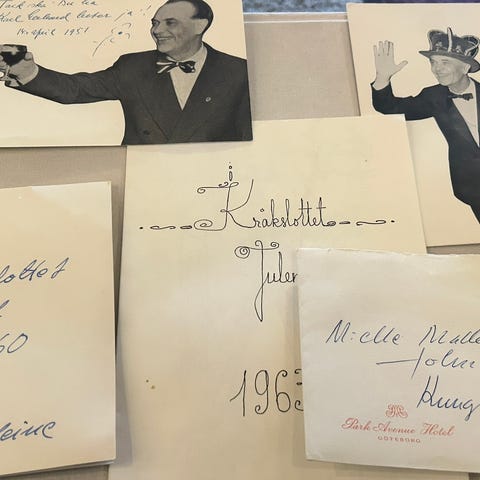 Tack ska Du ha
Karl Gerhard ja!!
14 april 1951
i
Kråkslottet
Julen
1963
lottet
60
eine
M:lle Malle
John
Kung
Park Avenue Hotel
GÖTEBORG